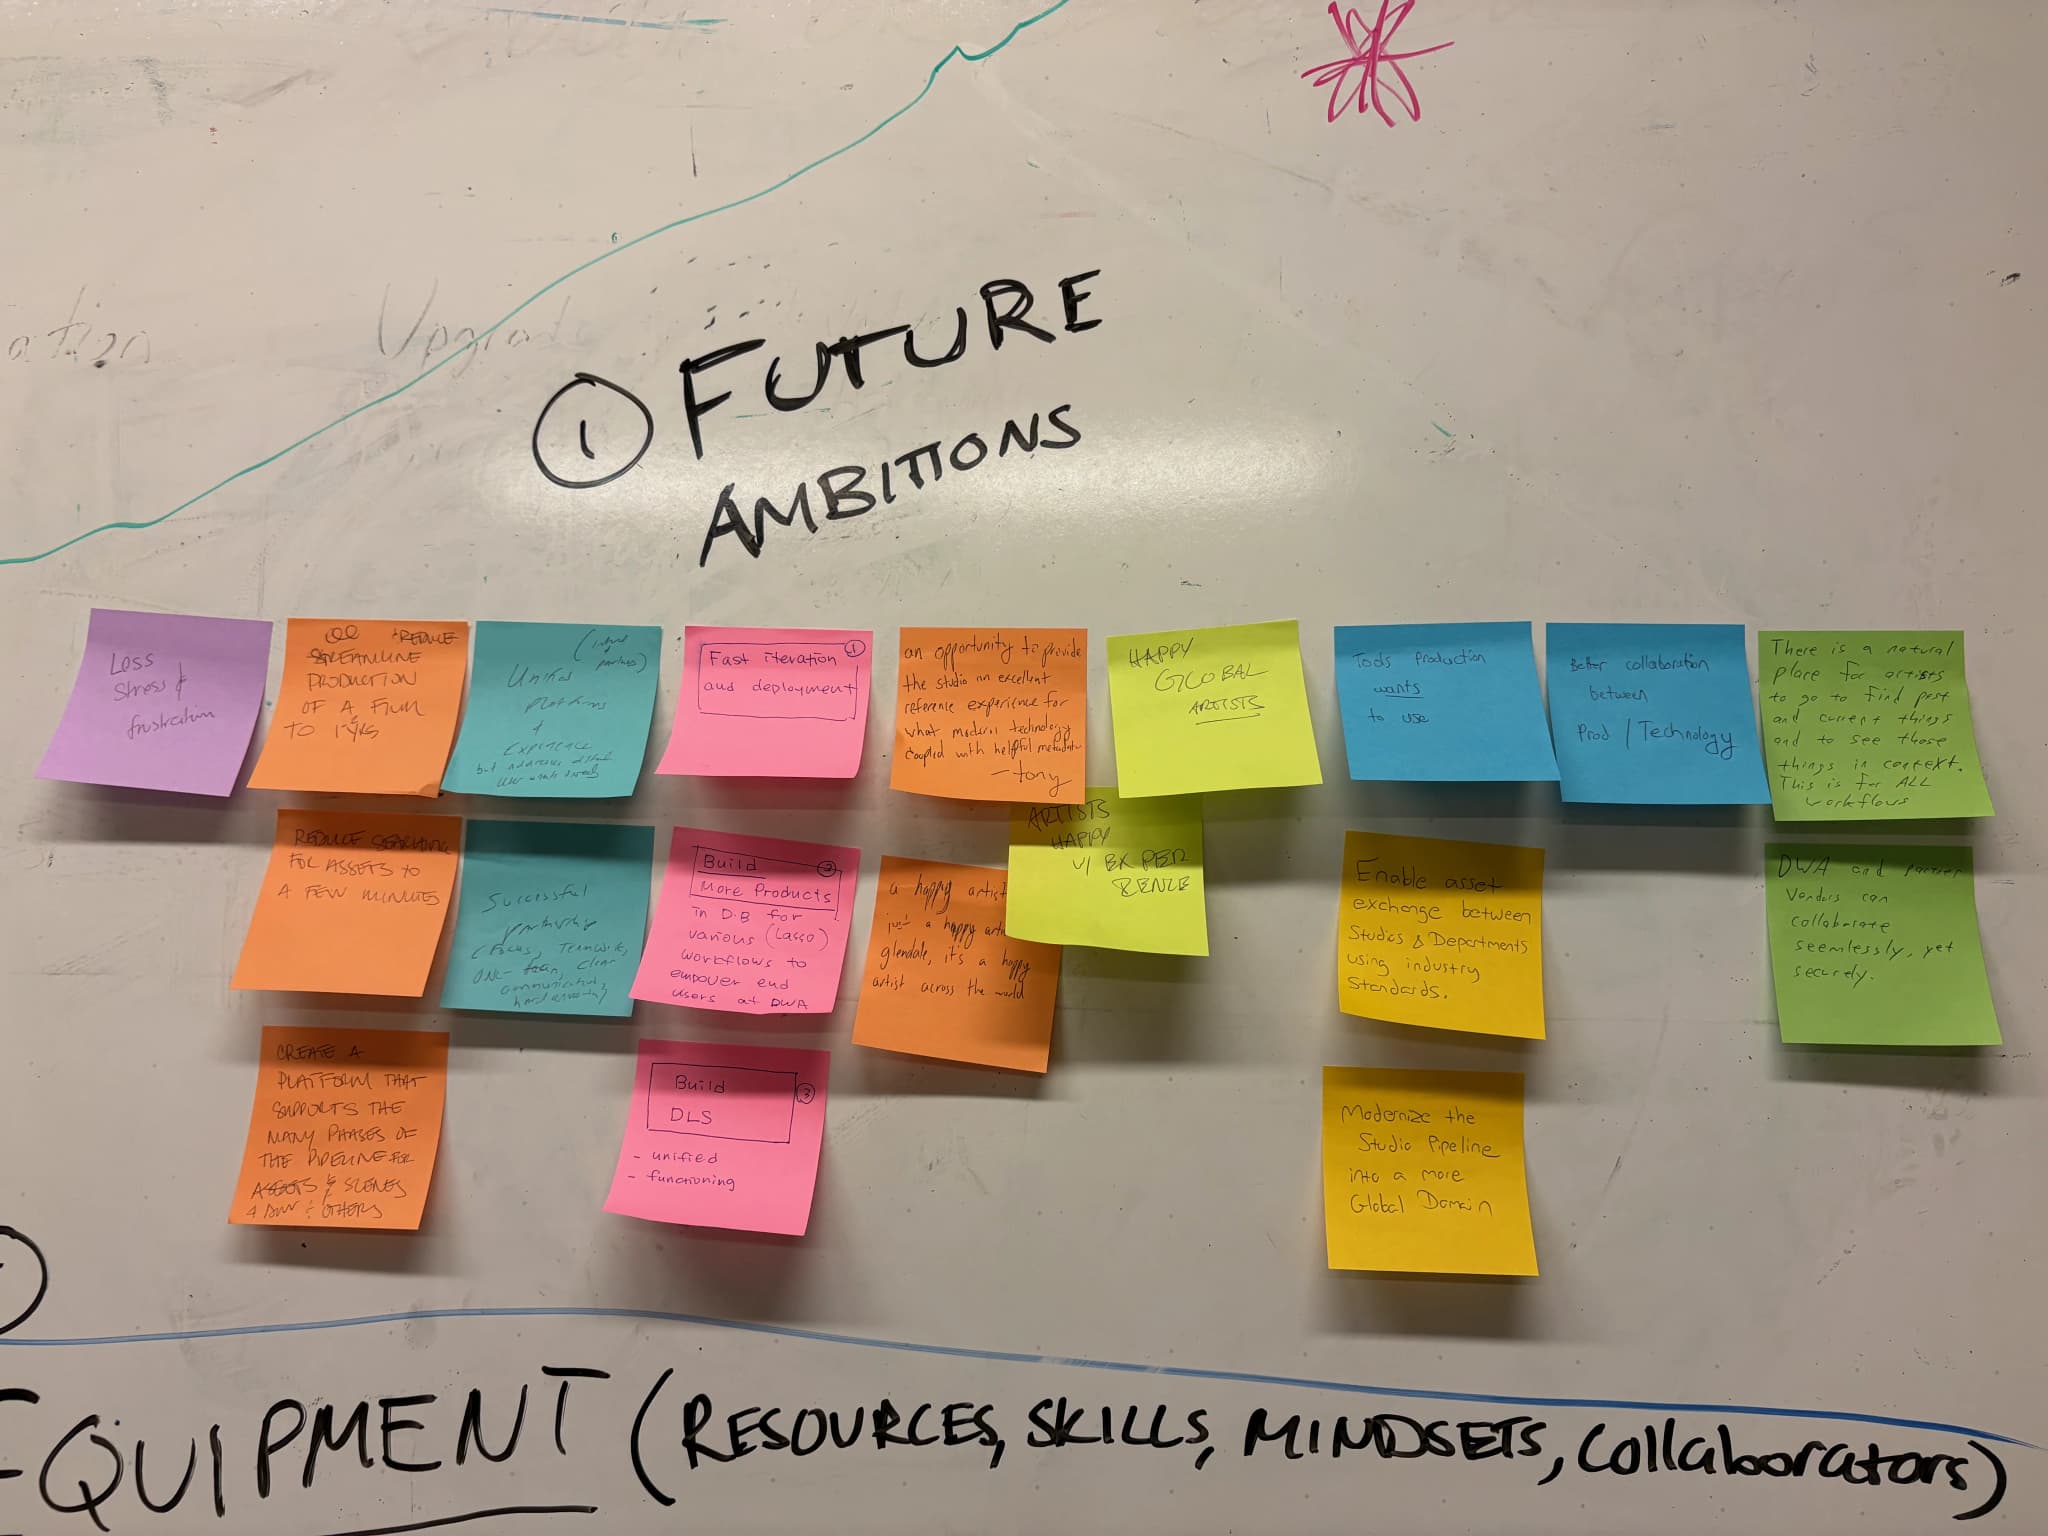 Upgrade
① FUTURE
AMBITIONS
Less
stress &
frustration
REDUCE
STREAMLINE
PRODUCTION
OF A FILM
TO 1 YRS
platforms
&
EXPERIENCE
but
Fast iteration ①
and deployment
an opportunity to provide
the studio an excellent
reference experience for
what modern technology
coupled with helpful metadata
- tony
HAPPY
GLOBAL
ARTISTS
Tools production
wants
to use
Better collaboration
between
Prod / Technology
There is a natural
place for artists
to go to find past
and current things
and to see those
things in context.
This is for ALL
workflows
REDUCE SEARCHING
FOR ASSETS TO
A FEW MINUTES
Successful
partnership
(Focus, Teamwork,
ONE-team, clear
communication,
Build ②
More Products
in D.B for
various (Lasso)
workflows to
empower end
users at DWA
a happy artist
just a happy
glendale, it's a happy
artist across the world
ARTISTS
HAPPY
W/ EXPER
IENCE
Enable asset
exchange between
Studios & Departments
using industry
Standards.
DWA and partner
Vendors can
collaborate
seemlessly, yet
securely.
CREATE A
PLATFORM THAT
SUPPORTS THE
MANY PHASES OF
THE PIPELINE FOR
ASSETS & SCENES
OTHERS
Build ③
DLS
- unified
- functioning
Modernize the
Studio Pipeline
into a more
Global Domain
EQUIPMENT (RESOURCES, SKILLS, MINDSETS, Collaborators)